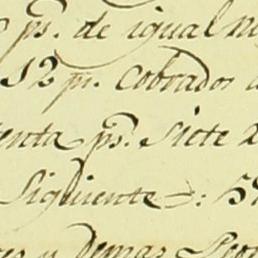 ps. de igual
12 ps. Cobrados
enta ps. Siete
Siguiente =:
y Demas